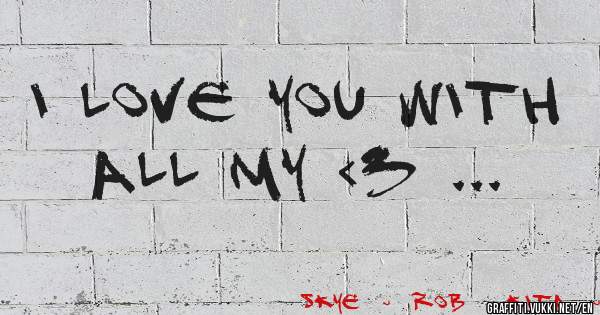 I LOVE YOU WITH
ALL MY <3 ...
SKYE . ROB
GRAFFITI.YUKKI.NET/EN